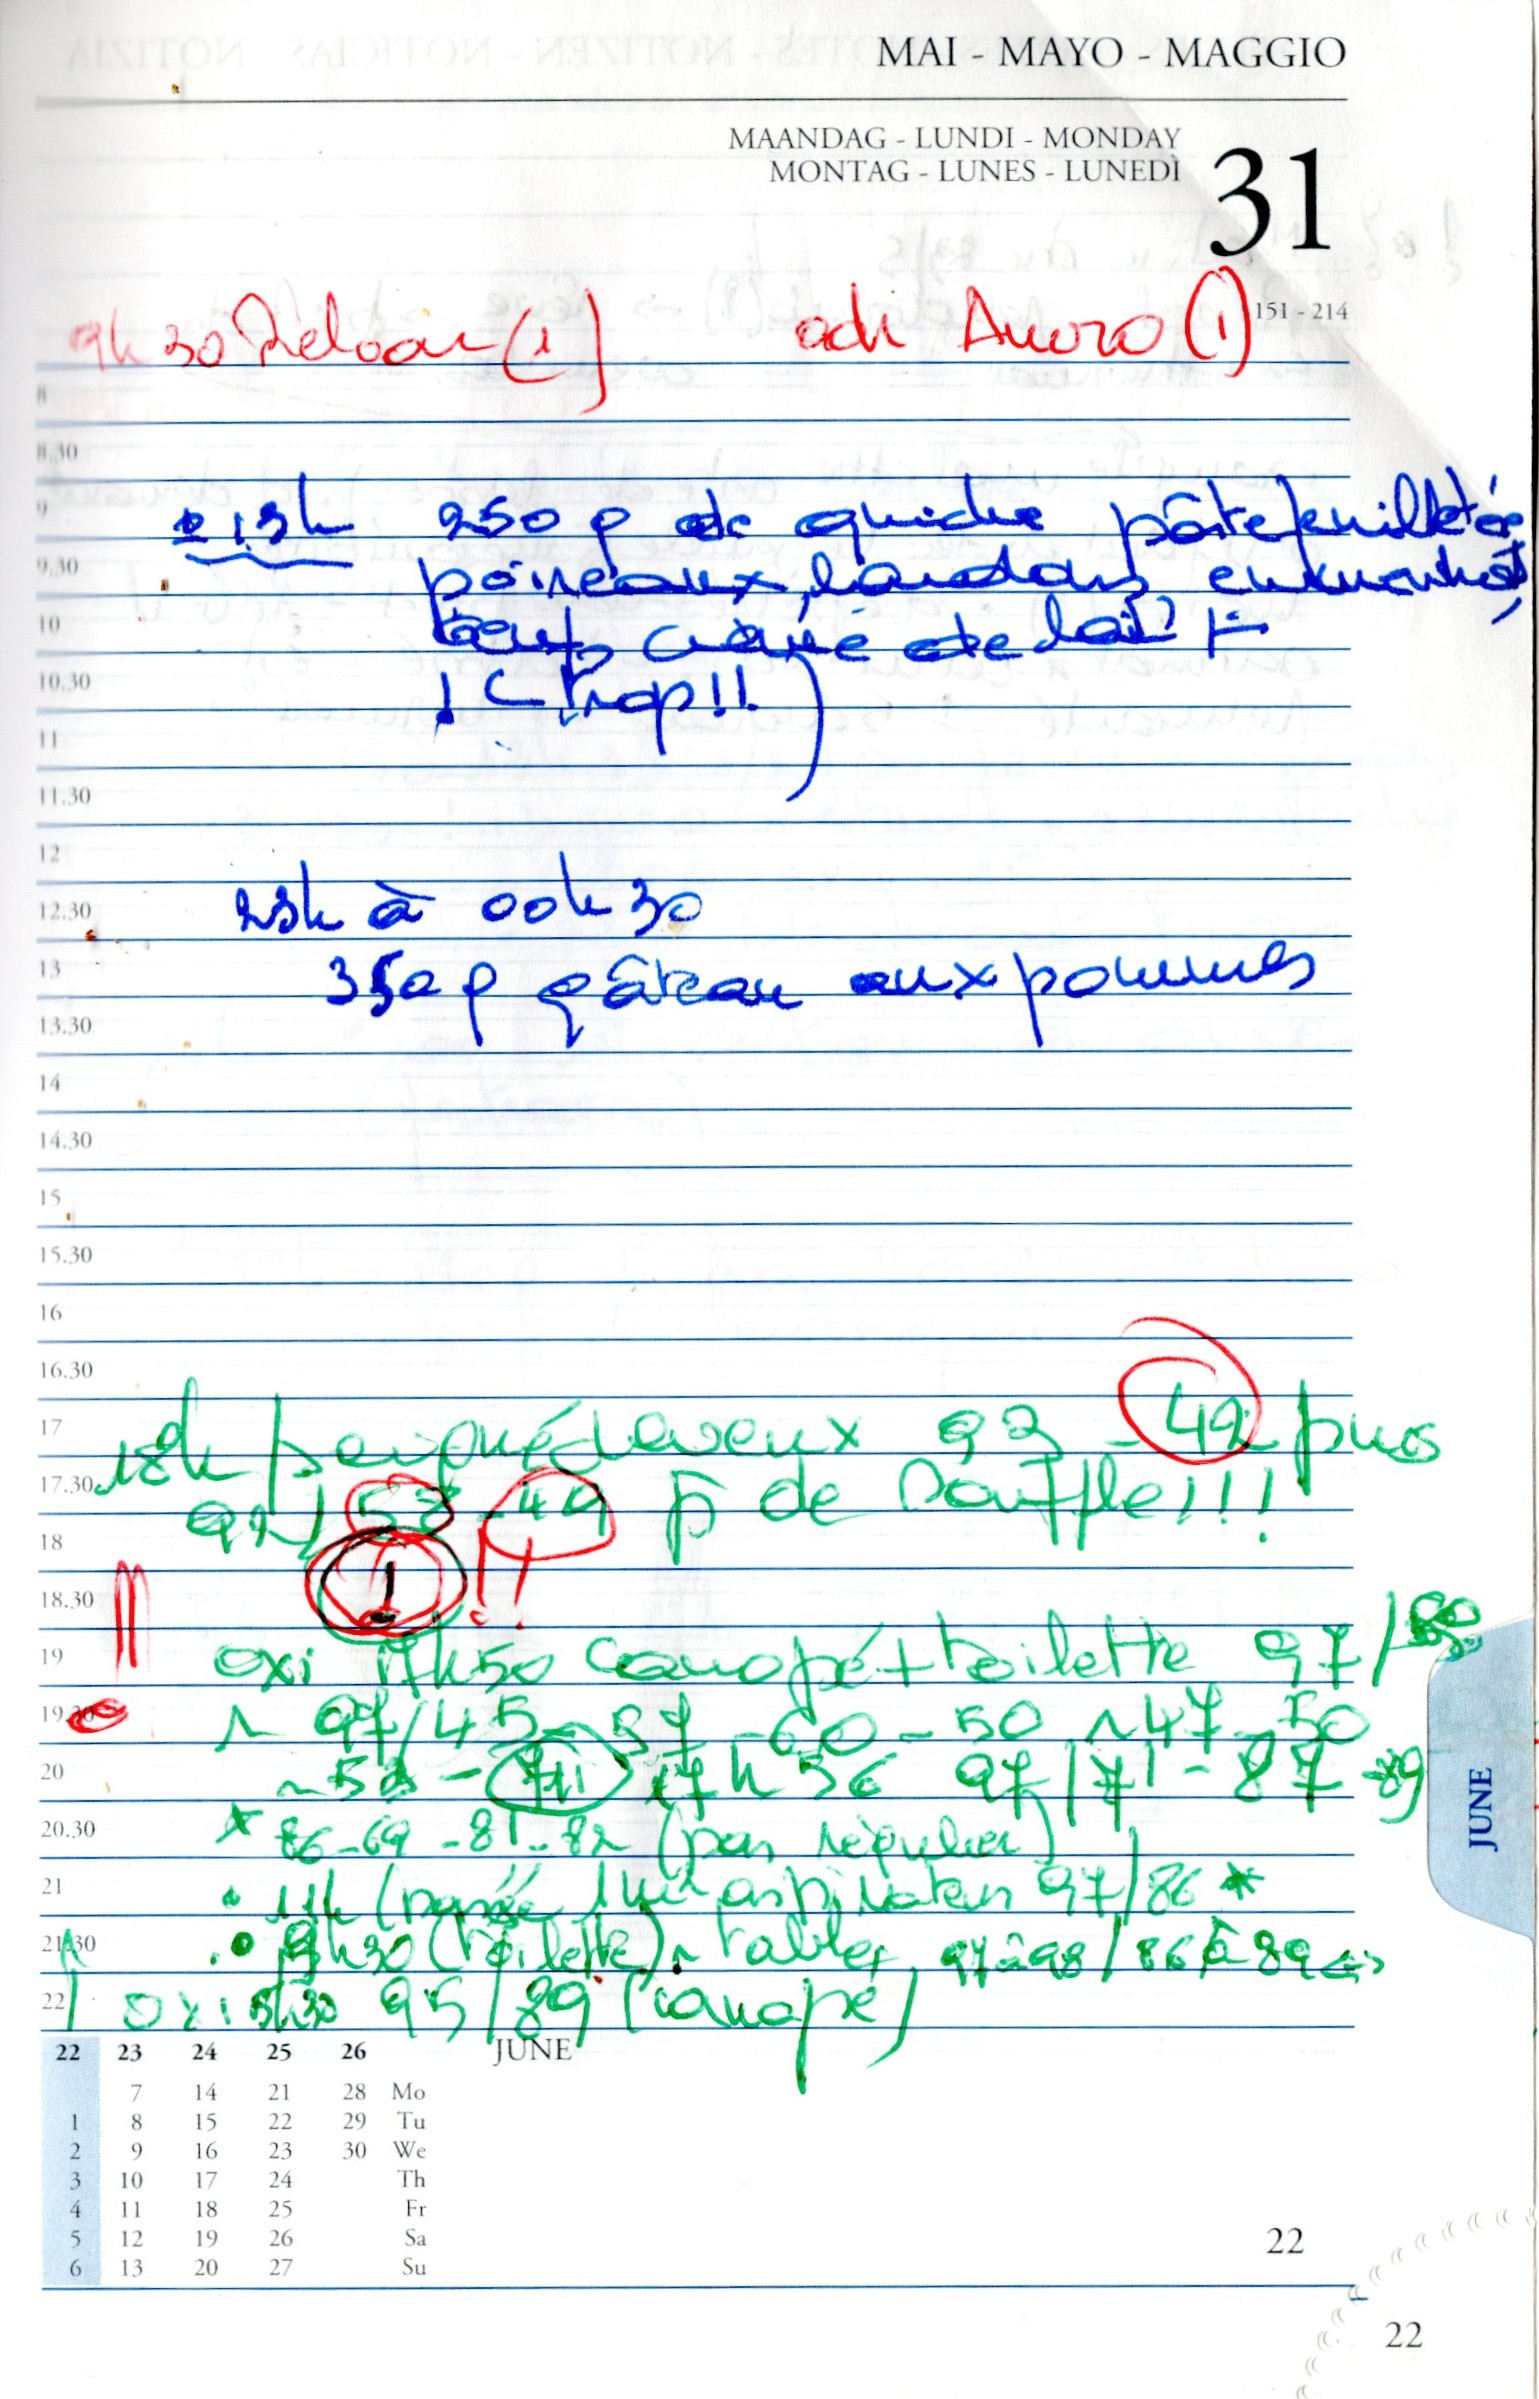 MAI - MAYO - MAGGIO
MAANDAG - LUNDI - MONDAY
MONTAG - LUNES - LUNEDÌ
31
151 - 214
9h 30 (1) (1)
8
8.30
9
13h 250 g de quiche pâte feuilletée
9.30
poireaux, lardons
10
crème de lait
10.30
! (trop!!)
11
11.30
12
23h à 00h30
12.30
350 g gâteau aux pommes
13
13.30
14
14.30
15
15.30
16
16.30
17
18h peigné cheveux 93 - 42 puis
17.30
92/53 - 49 p de souffle!!!
18
! !!
18.30
19
oxi 17h50 canapé + toilette 97/
19.30
97/45 - 57 - 60 - 50 ~ 47 - 50
20
17h56 97/71 - 87 - 89
20.30
* 86 - 69 - 81 - 82 (pas régulier)
21
• 11h (passé aspirateur 97/86 *
21.30
• 9h30 (toilette) table, 97 à 98/86 à 89
22
oxi 5h30 95/89 (canapé)
JUNE
22 23 24 25 26 JUNE
7 14 21 28 Mo
1 8 15 22 29 Tu
2 9 16 23 30 We
3 10 17 24 Th
4 11 18 25 Fr
5 12 19 26 Sa
6 13 20 27 Su
22
22